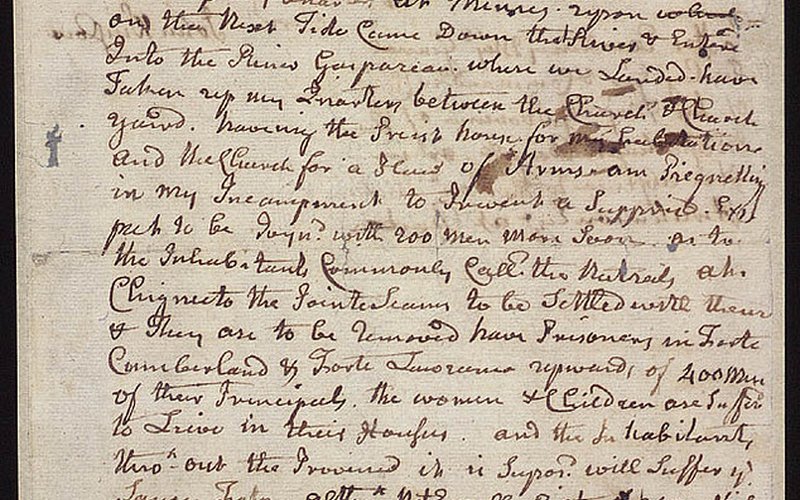 at Mennes. upon
on the Next Tide Came Down the River & Enter'd
Into the River Gaspareau. where we Landed. have
Taken up my Quarters between the Church & Church
yeard. haveing the Preist house for my Habitation
and the Church for a Place of Arms. am Picqueting
in my Incampment to Prevent a Supprise. Ex
pect to be Joyn'd with 200 Men More Soon. as to
the Inhabitants Commonly Call'd the Nutrals at
Chignecto the Pointe Seams to be Settled with them
& They are to be removed have Prisoners in Forte
Cumberland & Forte Lawrance upwards of 400 Men
of their Principals. the women & Children are Suffer'd
to Leive in their Houses. and the Inhabitants
thro'out the Provence it is Supos'd will Suffer ye
Same Fate